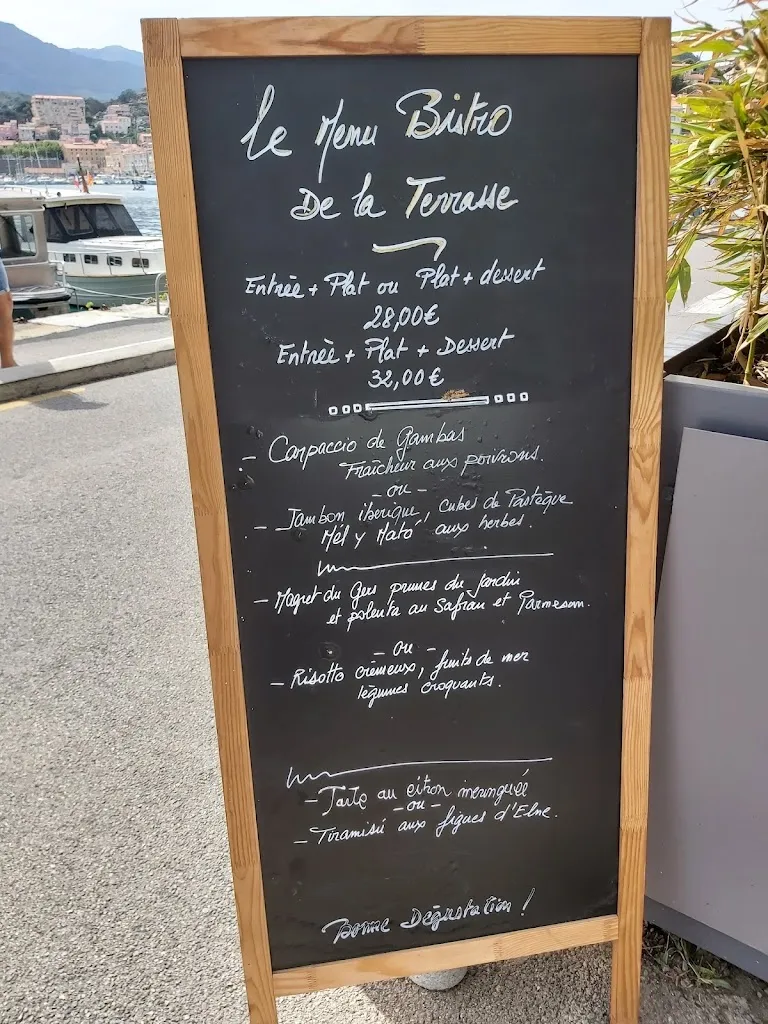 Le Menu Bistro
De la Terrasse
Entrée + Plat ou Plat + dessert
28,00€
Entrée + Plat + Dessert
32,00€
- Carpaccio de Gambas
Fraîcheur aux poivrons.
- ou -
- Jambon iberique, cubes de Pastèque
Mél y Mató aux herbes.
- Magret du Gers prunes du jardin
et polenta au Safran et Parmesan.
- ou -
- Risotto crémeux, fruits de mer
légumes croquants.
- Tarte au citron meringuée
- ou -
- Tiramisú aux figues d'Elne.
Bonne Dégustation !